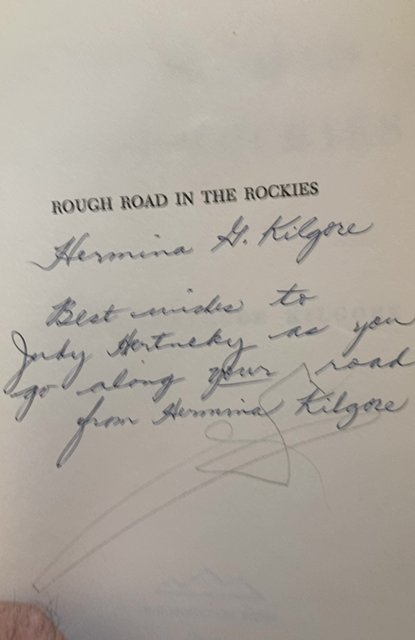 ROUGH ROAD IN THE ROCKIES
Hermina G. Kilgore
Best wishes to
Judy Hertneky as you
go along your road
from Hermina Kilgore